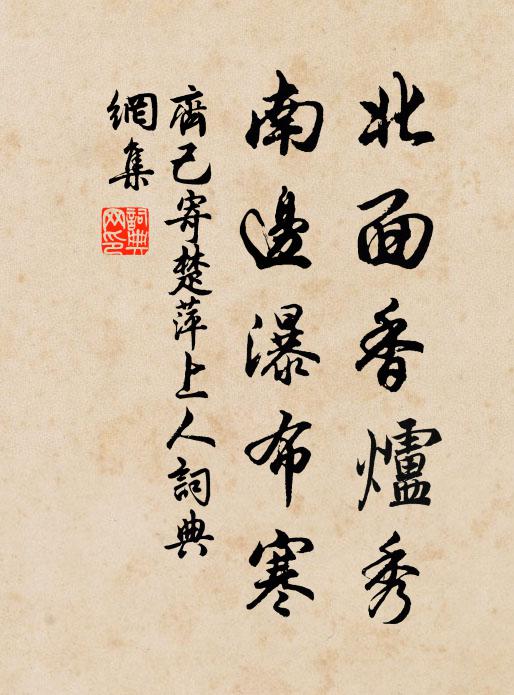 北面香爐秀
南邊瀑布寒
齊己寄楚萍上人詞典
網集
詞典
网印